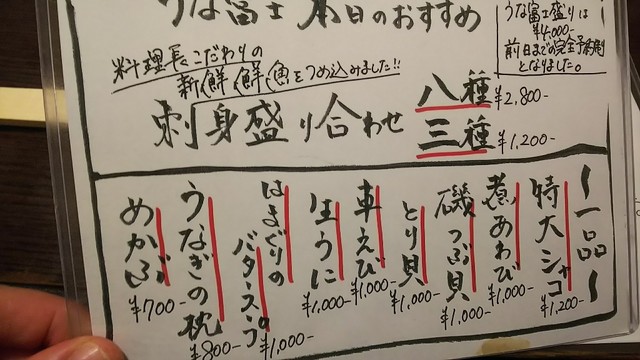 うな富士 本日のおすすめ
うな富士盛りは
¥4,000-
前日までの完全予約制
となりました。
料理長こだわりの
新鮮鮮魚をつめ込みました!!
刺身盛り合わせ
八種 ¥2,800-
三種 ¥1,200-
一品
特大シャコ ¥1,200-
煮あわび ¥1,000-
磯つぶ貝 ¥1,000-
とり貝 ¥1,000-
車えび ¥1,000-
生うに ¥1,000-
はまぐりの
バタースープ ¥1,000-
うなぎの枕 ¥800-
めかぶ ¥700-